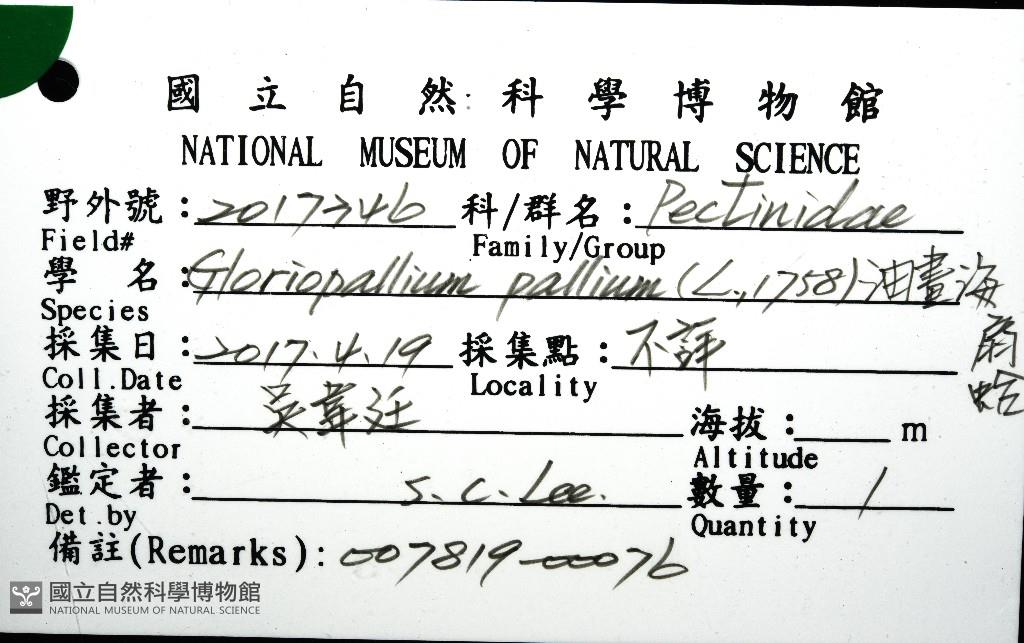 國立自然科學博物館
NATIONAL MUSEUM OF NATURAL SCIENCE
野外號：2017346 科/群名：Pectinidae
Field# Family/Group
學 名：Gloriopallium pallium (L., 1758) 油畫海扇蛤
Species
採集日：2017.4.19 採集點：不詳
Coll.Date Locality
採集者：吳韋廷 海拔： m
Collector Altitude
鑑定者： S. C. Lee. 數量： 1
Det.by Quantity
備註(Remarks): 007819-00076
國立自然科學博物館
NATIONAL MUSEUM OF NATURAL SCIENCE